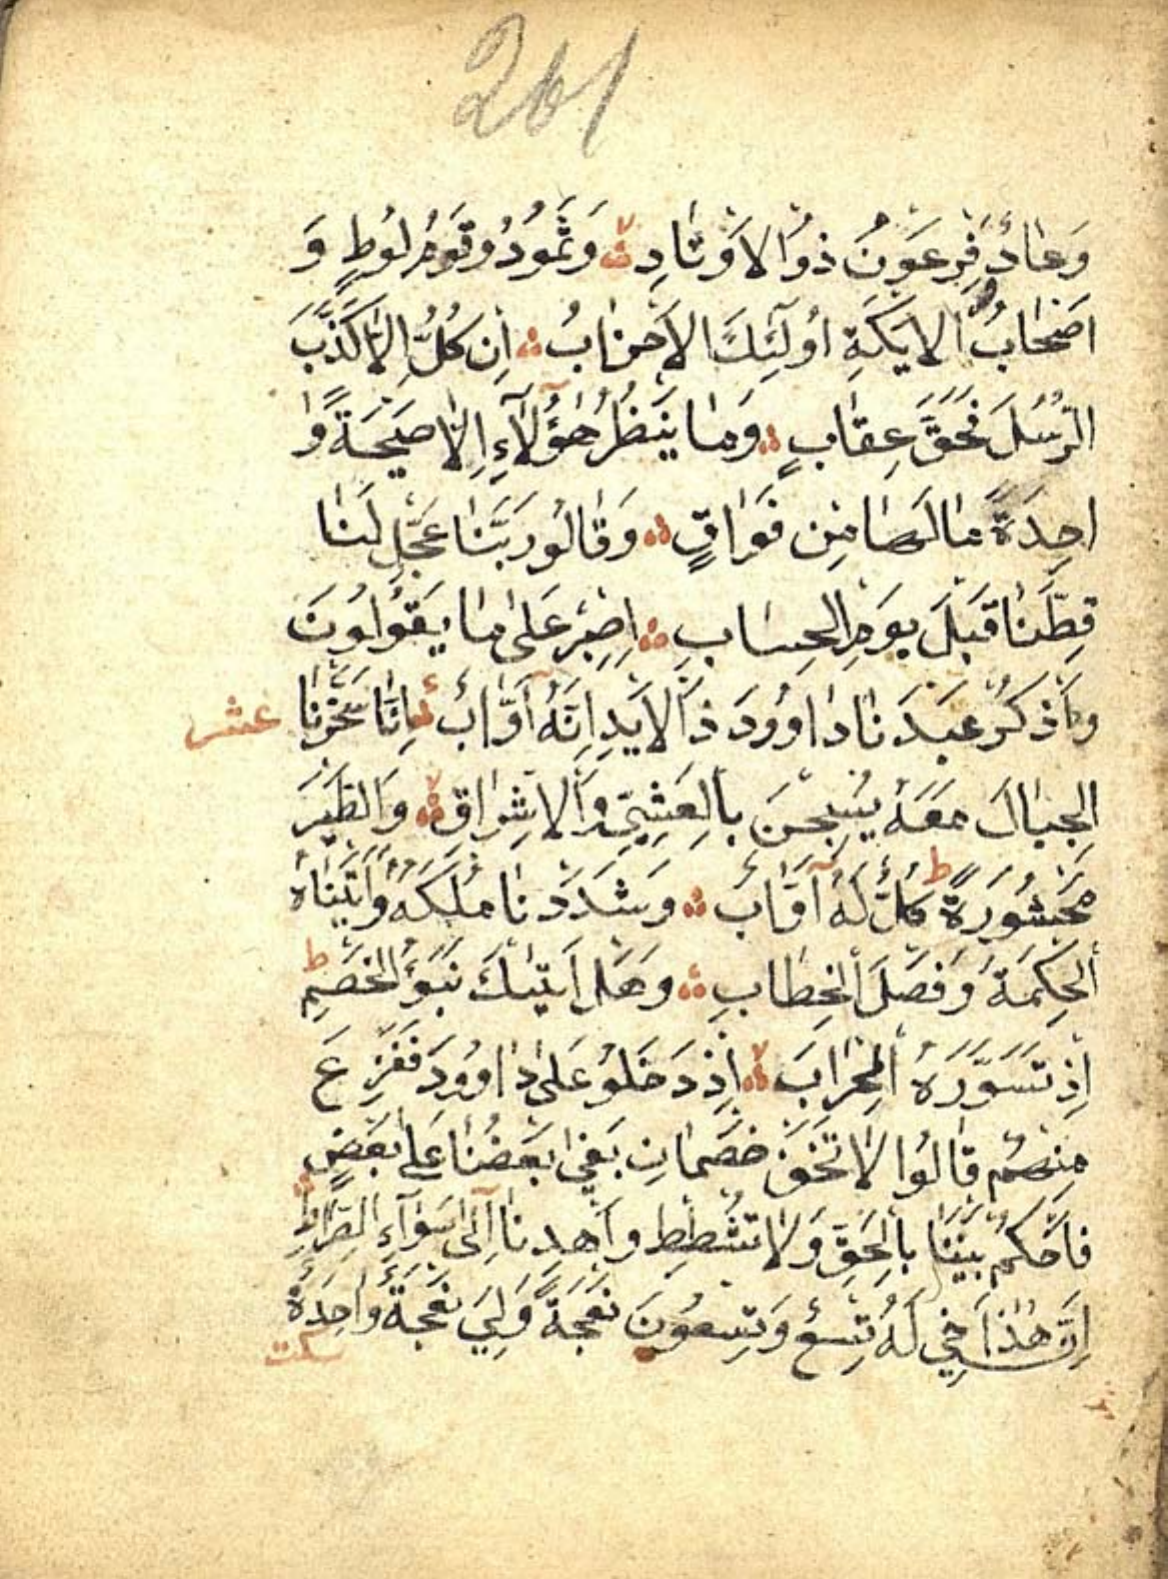 261
وَعَادٌ فِرْعَوْنُ ذُوا الاَوْتَادِ وَثَمُودُ وَقَوْمُ لُوطٍ وَ
اَصْحَابُ الاَيْكَةِ اُولَٓئِكَ الاَحْزَابُ اِنْ كُلٌّ اِلاَّ كَذَّبَ
الرُّسُلَ فَحَقَّ عِقَابِ وَمَا يَنْظُرُ هٰٓؤُلَآءِ اِلاَّ صَيْحَةً وَا
احِدَةً مَا لَهَا مِنْ فَوَاقٍ وَقَالُو رَبَّنَا عَجِّلْ لَنَا
قِطَّنَا قَبْلَ يَوْمِ الْحِسَابِ اِصْبِرْ عَلٰى مَا يَقُولُونَ
وَاذْكُرْ عَبْدَنَا دَاوُودَ ذَا الاَيْدِ اِنَّهُ اَوَّابٌ اِنَّا سَخَّرْنَا
عشر
الْجِبَالَ مَعَهُ يُسَبِّحْنَ بِالْعَشِيِّ وَالاِشْرَاقِ وَالطَّيْرَ
مَحْشُورَةً ط كُلٌّ لَهُ اَوَّابٌ وَشَدَدْنَا مُلْكَهُ وَاٰتَيْنَاهُ
الْحِكْمَةَ وَفَصْلَ الْخِطَابِ وَهَلْ اَتٰيكَ نَبَؤُا الْخَصْمِ ط
اِذْ تَسَوَّرُهُ الْمِحْرَابَ اِذْ دَخَلُو عَلٰى دَاوُودَ فَفَزِعَ
مِنْهُمْ قَالُوا لاَ تَخَفْ خَصْمَانِ بَغٰى بَعْضُنَا عَلٰى بَعْضٍ
فَاحْكُمْ بَيْنَنَا بِالْحَقِّ وَلاَ تُشْطِطْ وَاهْدِنَا اِلٰى سَوَآءِ الصِّرَاطِ
اِنَّ هٰذَا اَخِي لَهُ تِسْعٌ وَتِسْعُونَ نَعْجَةً وَلِيَ نَعْجَةٌ وَاحِدَةٌ
سكت